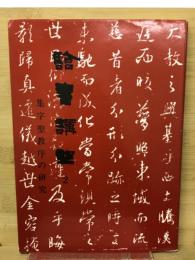 大教之興基乎西土騰漢
庭而皎夢照東域而流
慈昔者分形分跡之時言
未馳而成化當常現常之
世
及乎晦
影歸真遷儀越世金容掩
集字聖教序の研究